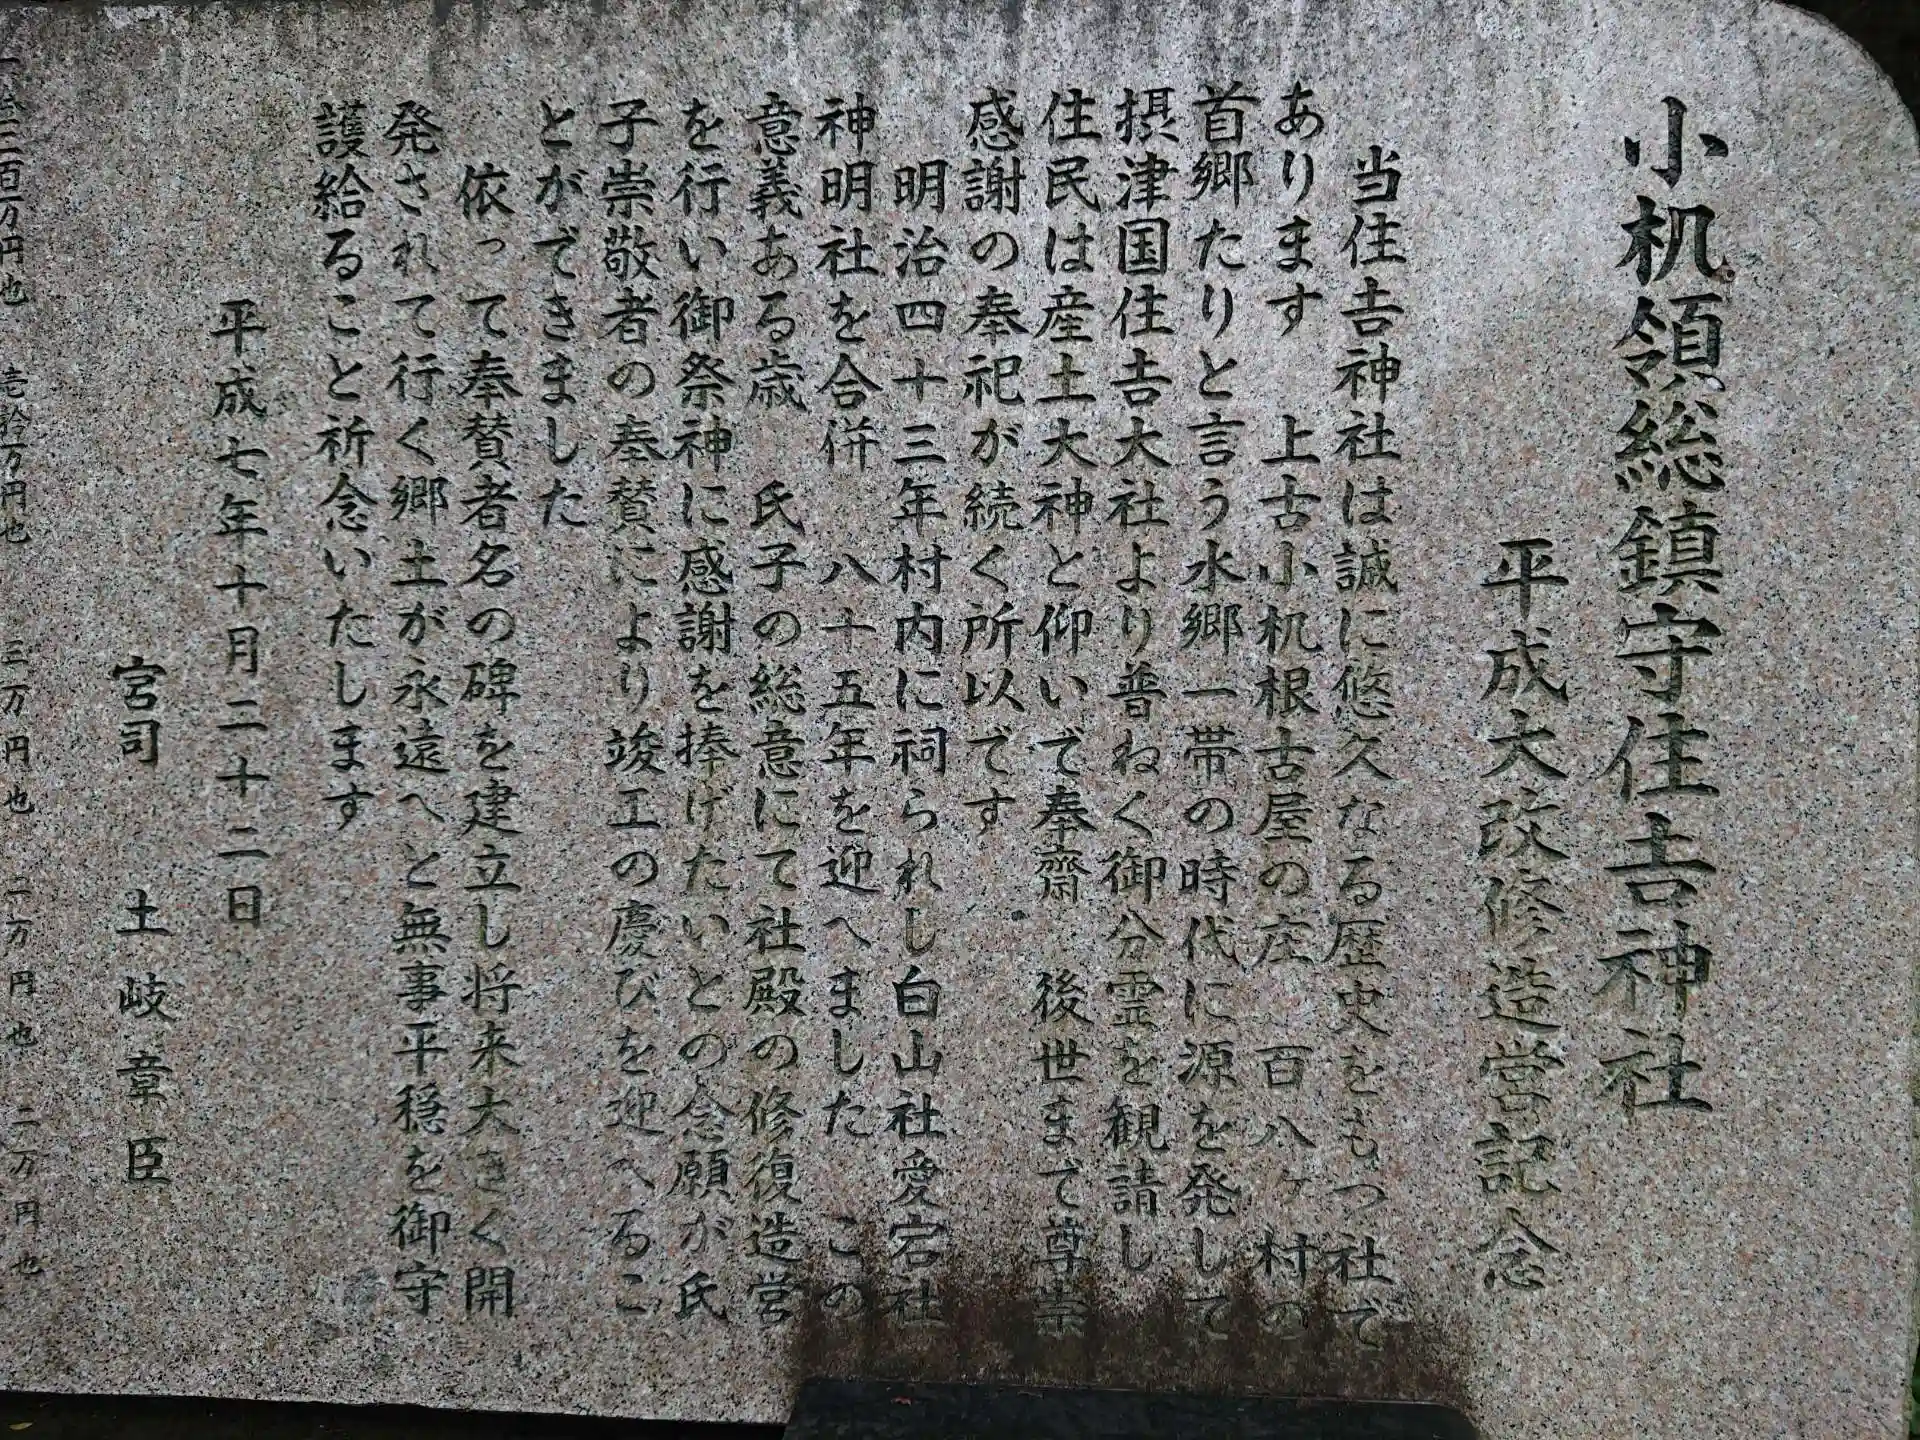 小机領総鎮守住吉神社
平成大改修造営記念
当住吉神社は誠に悠久なる歴史をもつ社で
あります　上古小机根古屋の庄　百八ヶ村の
首郷たりと言う水郷一帯の時代に源を発して
摂津国住吉大社より普ねく御分霊を観請し
住民は産土大神と仰いで奉齋　後世まて尊崇
感謝の奉祀が続く所以です
明治四十三年村内に祠られし白山社愛宕社
神明社を合併　八十五年を迎へました　この
意義ある歳　氏子の総意にて社殿の修復造営
を行い御祭神に感謝を捧げたいとの念願が氏
子崇敬者の奉賛により竣工の慶びを迎へるこ
とができました
依って奉賛者名の碑を建立し将来大きく開
発されて行く郷土が永遠へと無事平穏を御守
護給ること祈念いたします
平成七年十月二十二日
宮司　土岐章臣
百万円也　壱拾万円也　三万円也　二万円也　二万円也